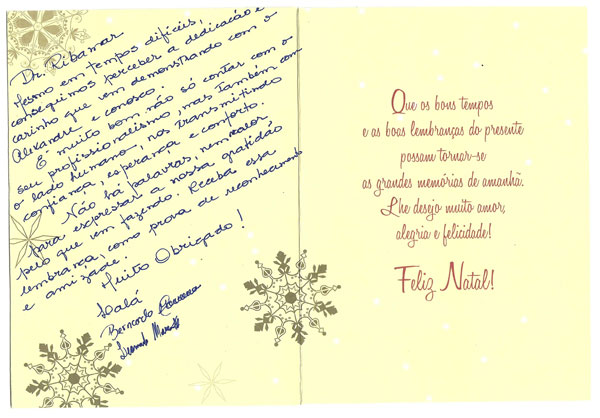 Dr. Ribamar
Mesmo em tempos difíceis,
conseguimos perceber a dedicação e
carinho que vem demonstrando com o
Alexandre e conosco.
É muito bom não só contar com o
seu profissionalismo, mas também com
o lado humano, nos transmitindo
confiança, esperança e conforto.
Não há palavras, nem valor
para expressar a nossa gratidão
pelo que vem fazendo. Receba essa
lembrança, como prova de reconhecimento
e amizade.
Muito Obrigado!
Lalá
Bernardo
Leonardo
Que os bons tempos
e as boas lembranças do presente
possam tornar-se
as grandes memórias de amanhã.
Lhe desejo muito amor,
alegria e felicidade!
Feliz Natal!